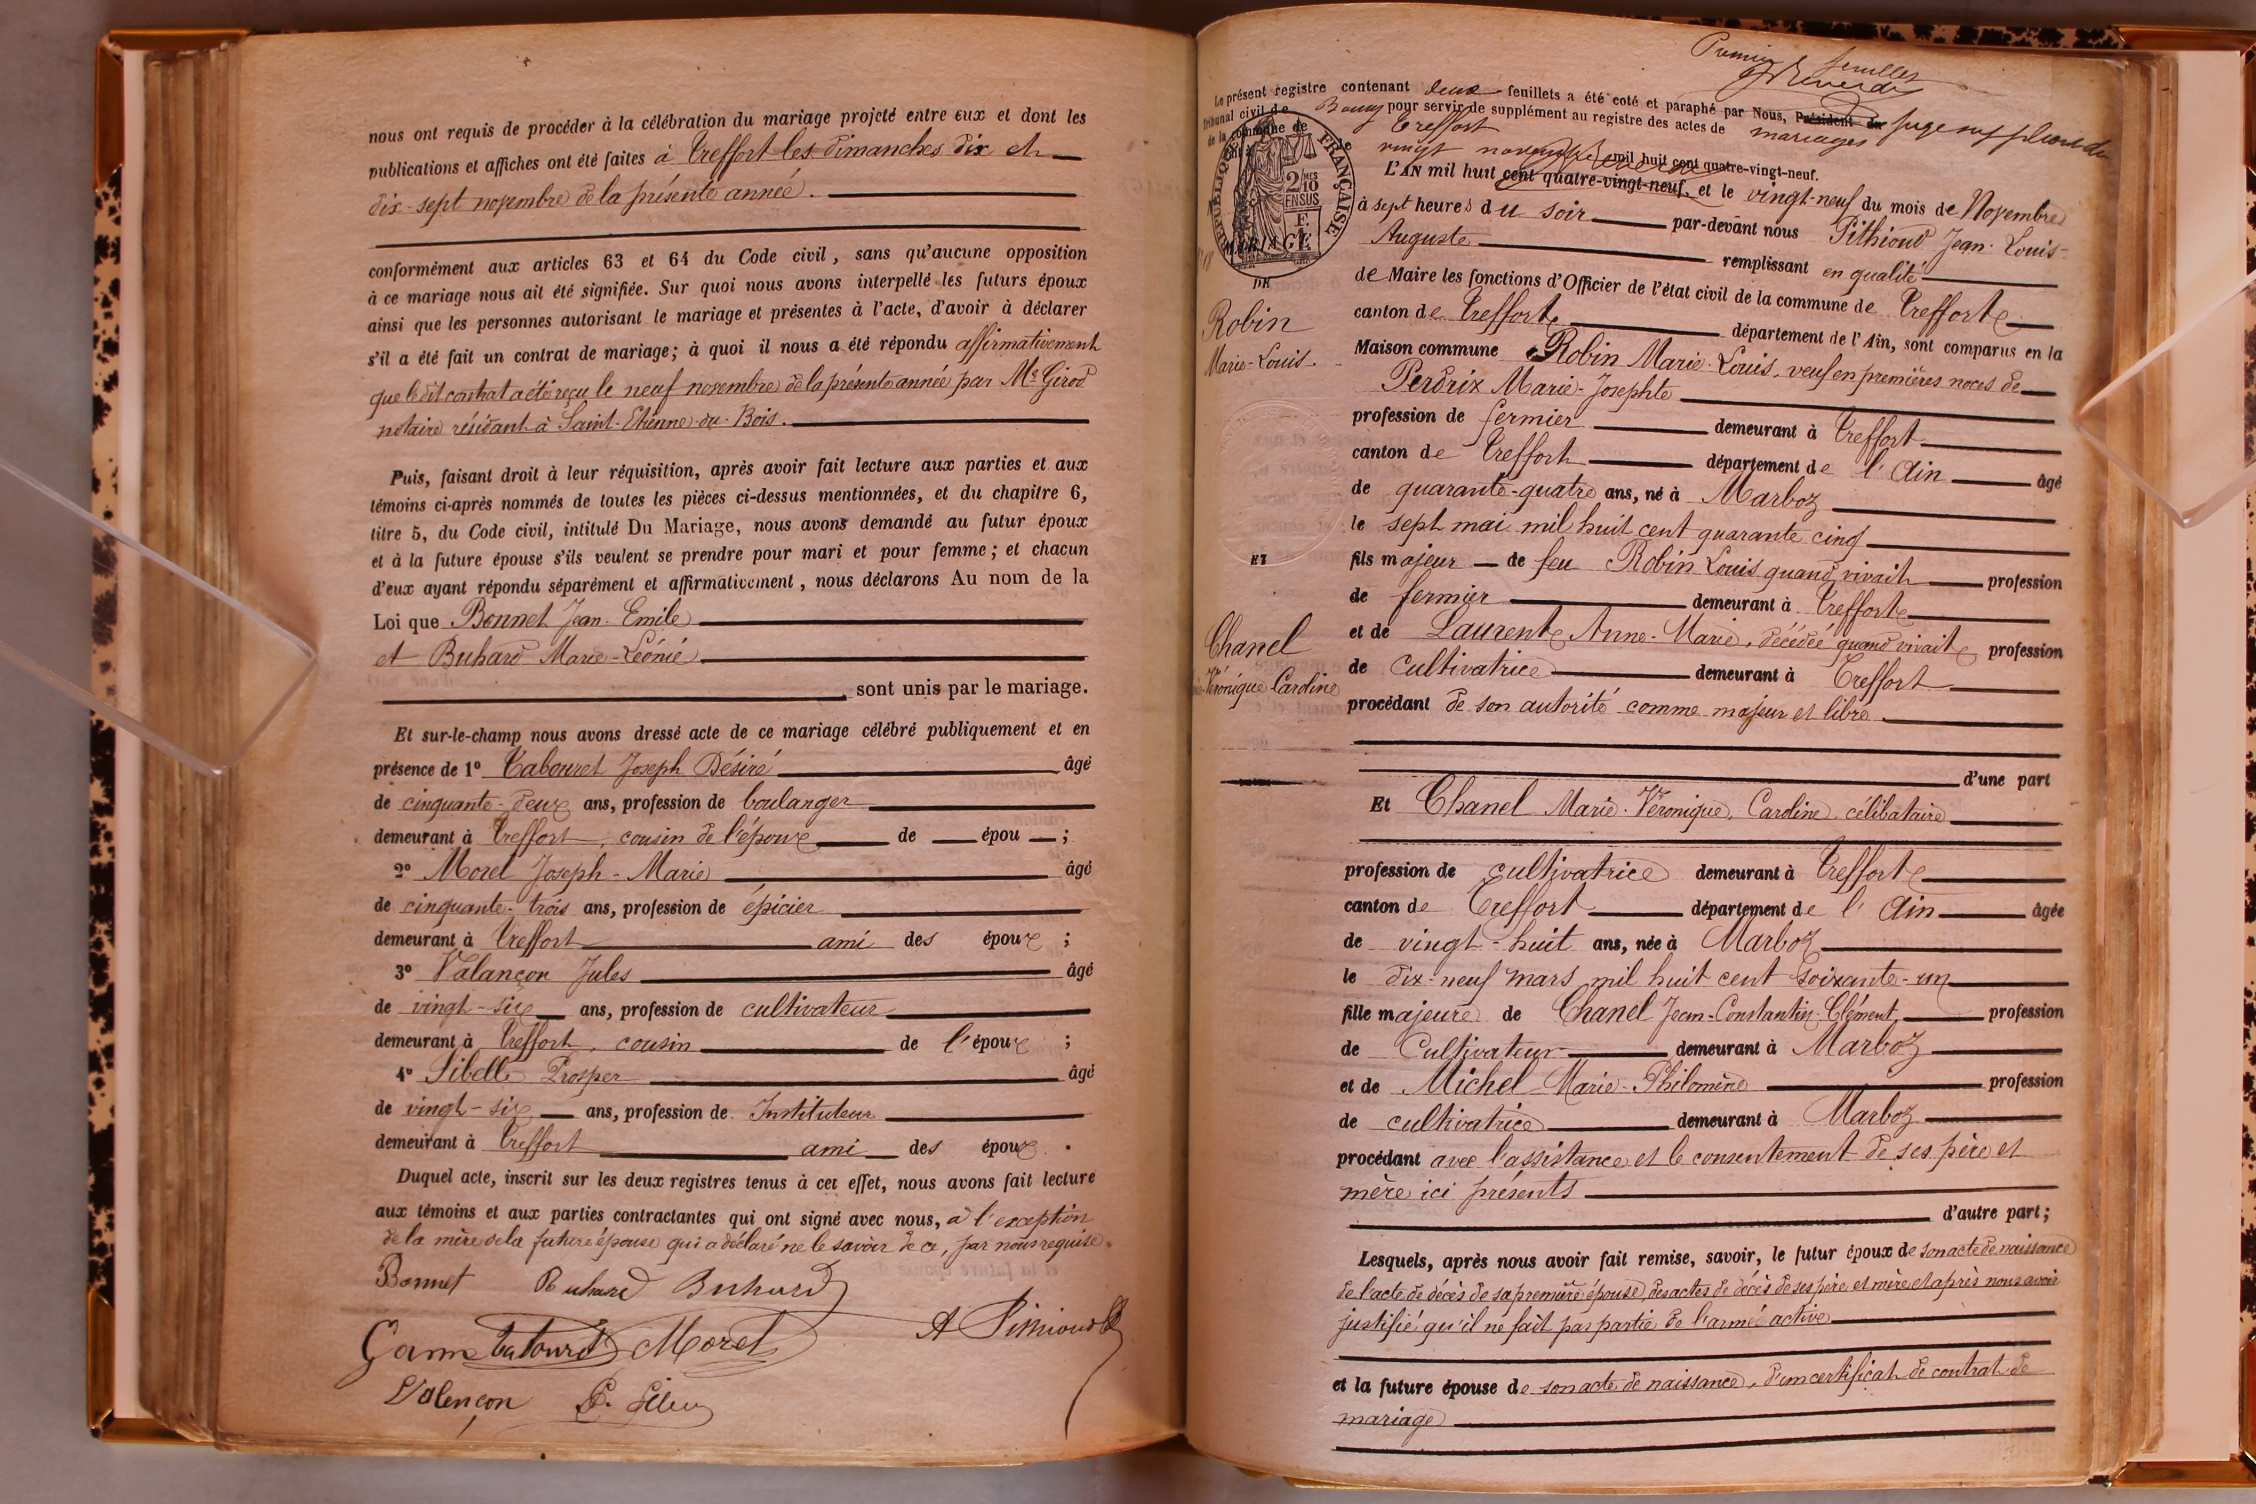 nous ont requis de procéder à la célébration du mariage projeté entre eux et dont les
publications et affiches ont été faites à Treffort les dimanches dix et
dix-sept novembre de la présente année.
conformément aux articles 63 et 64 du Code civil, sans qu'aucune opposition
à ce mariage nous ait été signifiée. Sur quoi nous avons interpellé les futurs époux
ainsi que les personnes autorisant le mariage et présentes à l'acte, d'avoir à déclarer
s'il a été fait un contrat de mariage; à quoi il nous a été répondu affirmativement
que le dit contrat a été reçu le neuf novembre de la présente année par Me Girod
notaire résidant à Saint-Etienne-du-Bois.
Puis, faisant droit à leur réquisition, après avoir fait lecture aux parties et aux
témoins ci-après nommés de toutes les pièces ci-dessus mentionnées, et du chapitre 6,
titre 5, du Code civil, intitulé Du Mariage, nous avons demandé au futur époux
et à la future épouse s'ils veulent se prendre pour mari et pour femme; et chacun
d'eux ayant répondu séparément et affirmativement, nous déclarons Au nom de la
Loi que Bonnet Jean-Emile
et Buhard Marie-Léonie
sont unis par le mariage.
Et sur-le-champ nous avons dressé acte de ce mariage célébré publiquement et en
présence de 1º Tabouret Joseph Désiré âgé
de cinquante-deux ans, profession de boulanger
demeurant à Treffort, cousin de l'époux de épou ;
2º Morel Joseph-Marie âgé
de cinquante-trois ans, profession de épicier
demeurant à Treffort ami des époux ;
3º Valançon Jules âgé
de vingt-six ans, profession de cultivateur
demeurant à Treffort, cousin de l'époux ;
4º Sibelle Prosper âgé
de vingt-six ans, profession de Instituteur
demeurant à Treffort ami des époux.
Duquel acte, inscrit sur les deux registres tenus à cet effet, nous avons fait lecture
aux témoins et aux parties contractantes qui ont signé avec nous, à l'exception
de la mère de la future épouse qui a déclaré ne le savoir de ce, par nous requise.
Bonnet Buhard Buhard
Tabouret Morel
Valençon
Premier feuillet
Le présent registre contenant deux feuillets a été coté et paraphé par Nous, Président du juge suppléant du
tribunal civil de Bourg pour servir de supplément au registre des actes de mariages
de la commune de Treffort
vingt novembre mil huit cent quatre-vingt-neuf.
RÉPUBLIQUE FRANÇAISE
2/10 EN SUS
L'AN mil huit cent quatre-vingt-neuf, et le vingt-neuf du mois de Novembre
à sept heures du soir par-devant nous Pithioud Jean-Louis-
Auguste remplissant en qualité
de Maire les fonctions d'Officier de l'état civil de la commune de Treffort
canton de Treffort département de l'Ain, sont comparus en la
Maison commune Robin Marie-Louis, veuf en premières noces de
Perdrix Marie-Josephte
profession de fermier demeurant à Treffort
canton de Treffort département de l'Ain âgé
de quarante-quatre ans, né à Marboz
le sept mai mil huit cent quarante cinq
fils majeur de feu Robin Louis quand vivait profession
de fermier demeurant à Treffort
et de Laurent Anne-Marie, décédée quand vivait profession
de cultivatrice demeurant à Treffort
procédant de son autorité comme majeur et libre
d'une part
Et Chanel Marie-Véronique, Caroline, célibataire
profession de cultivatrice demeurant à Treffort
canton de Treffort département de l'Ain âgée
de vingt-huit ans, née à Marboz
le dix-neuf mars mil huit cent soixante-un
fille majeure de Chanel Jean-Constantin-Clément, profession
de Cultivateur demeurant à Marboz
et de Michel Marie-Philomène profession
de cultivatrice demeurant à Marboz
procédant avec l'assistance et le consentement de ses père et
mère ici présents
d'autre part;
Lesquels, après nous avoir fait remise, savoir, le futur époux de son acte de naissance
de l'acte de décès de sa première épouse, des actes de décès de ses père et mère et après nous avoir
justifié qu'il ne fait pas partie de l'armée active
et la future épouse de son acte de naissance, d'un certificat de contrat de
mariage
MARIAGE
DE
Robin
Marie-Louis
ET
Chanel
Véronique Caroline